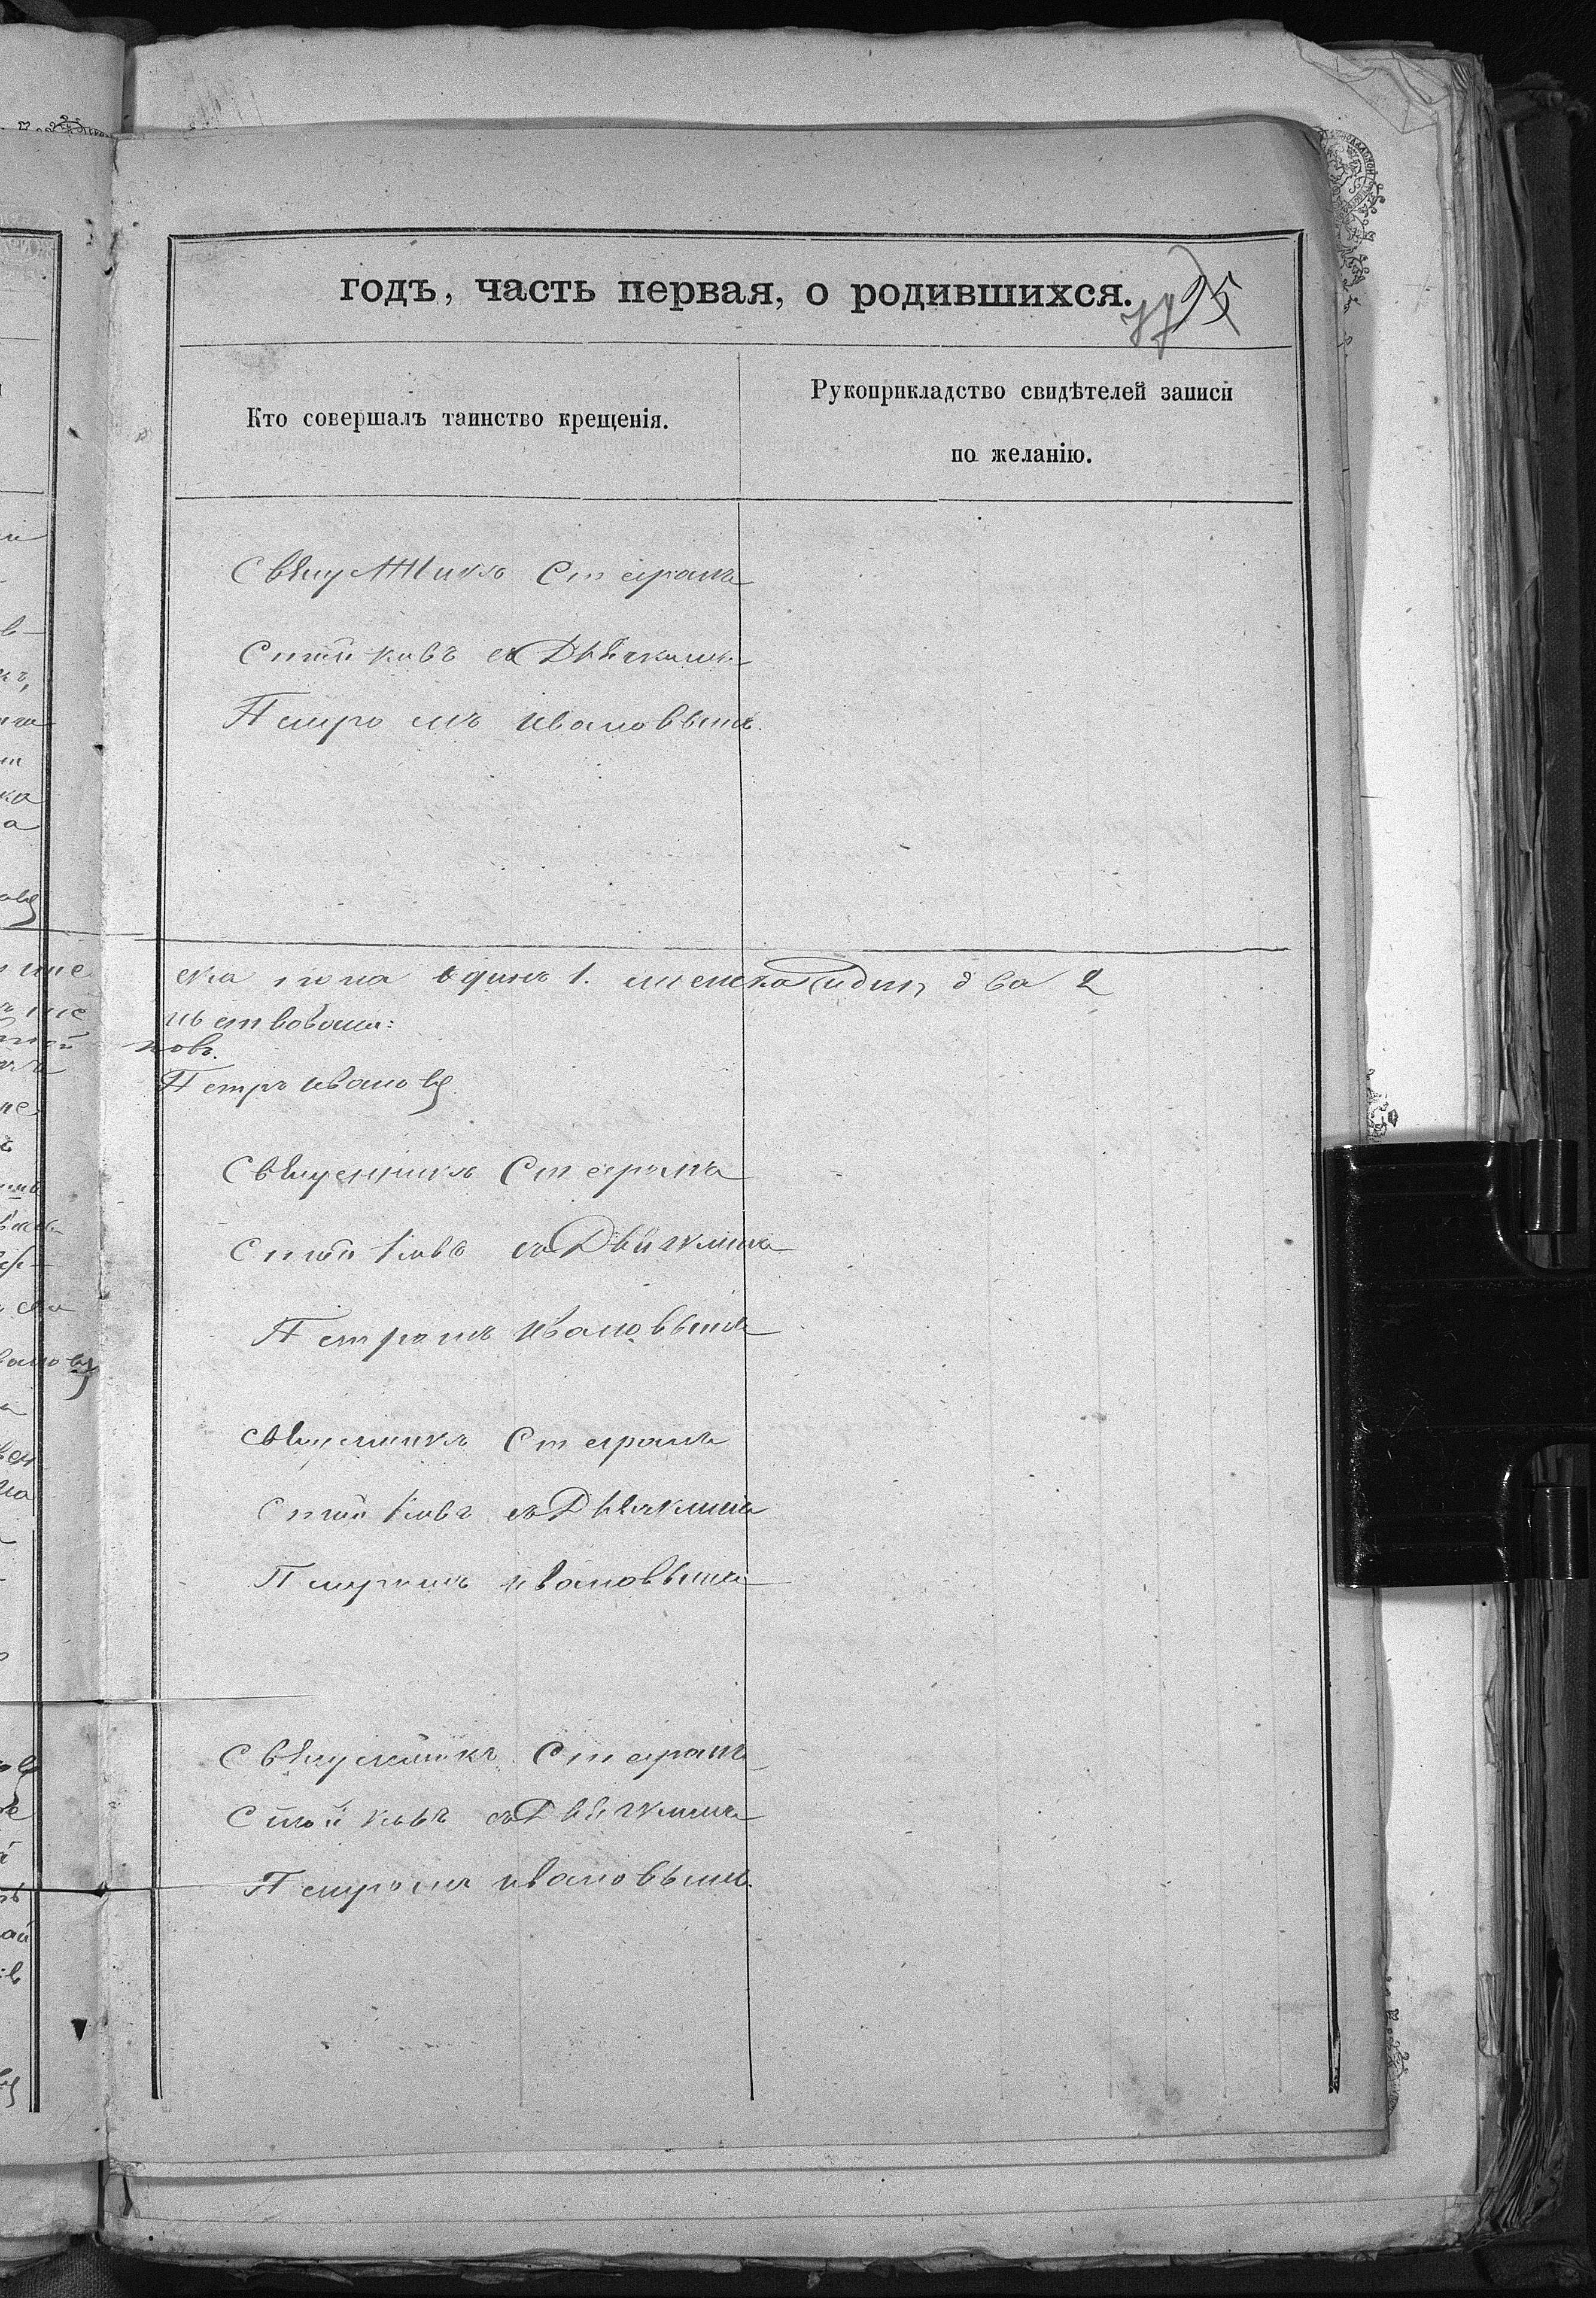 годъ, часть первая, о родившихся.
77 95
Кто совершалъ таинство крещенія.
Рукоприкладство свидѣтелей записи
по желанію.
Священникъ Стефанъ
Стойковъ съ Дьячкомъ
Петромъ Ивановымъ.
ска пола одинъ 1. женска два 2
ковъ.
Петръ Ивановъ
Священникъ Стефанъ
Стойковъ съ Дьячкомъ
Петромъ Ивановымъ
Священникъ Стефанъ
Стойковъ съ Дьячкомъ
Петромъ Ивановымъ
Священникъ Стефанъ
Стойковъ съ Дьячкомъ
Петромъ Ивановымъ.